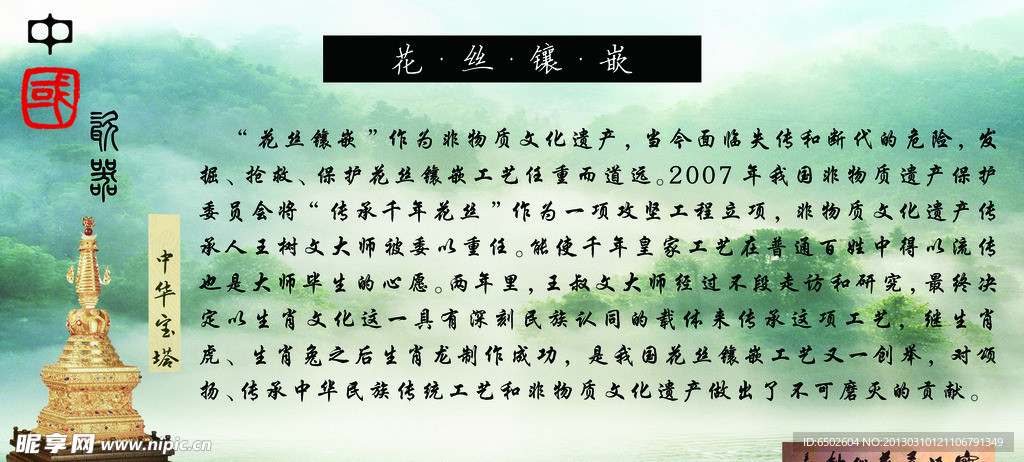 中
國
花·丝·镶·嵌
“花丝镶嵌”作为非物质文化遗产，当今面临失传和断代的危险，发
掘、抢救、保护花丝镶嵌工艺任重而道远。2007年我国非物质遗产保护
委员会将“传承千年花丝”作为一项攻坚工程立项，非物质文化遗产传
承人王树文大师被委以重任。能使千年皇家工艺在普通百姓中得以流传
也是大师毕生的心愿。两年里，王叔文大师经过不段走访和研究，最终决
定以生肖文化这一具有深刻民族认同的载体来传承这项工艺，继生肖
虎、生肖兔之后生肖龙制作成功，是我国花丝镶嵌工艺又一创举，对颂
扬、传承中华民族传统工艺和非物质文化遗产做出了不可磨灭的贡献。
中华宝塔
昵享网 www.nipic.cn
ID:6502604 NO:20130310121106791349